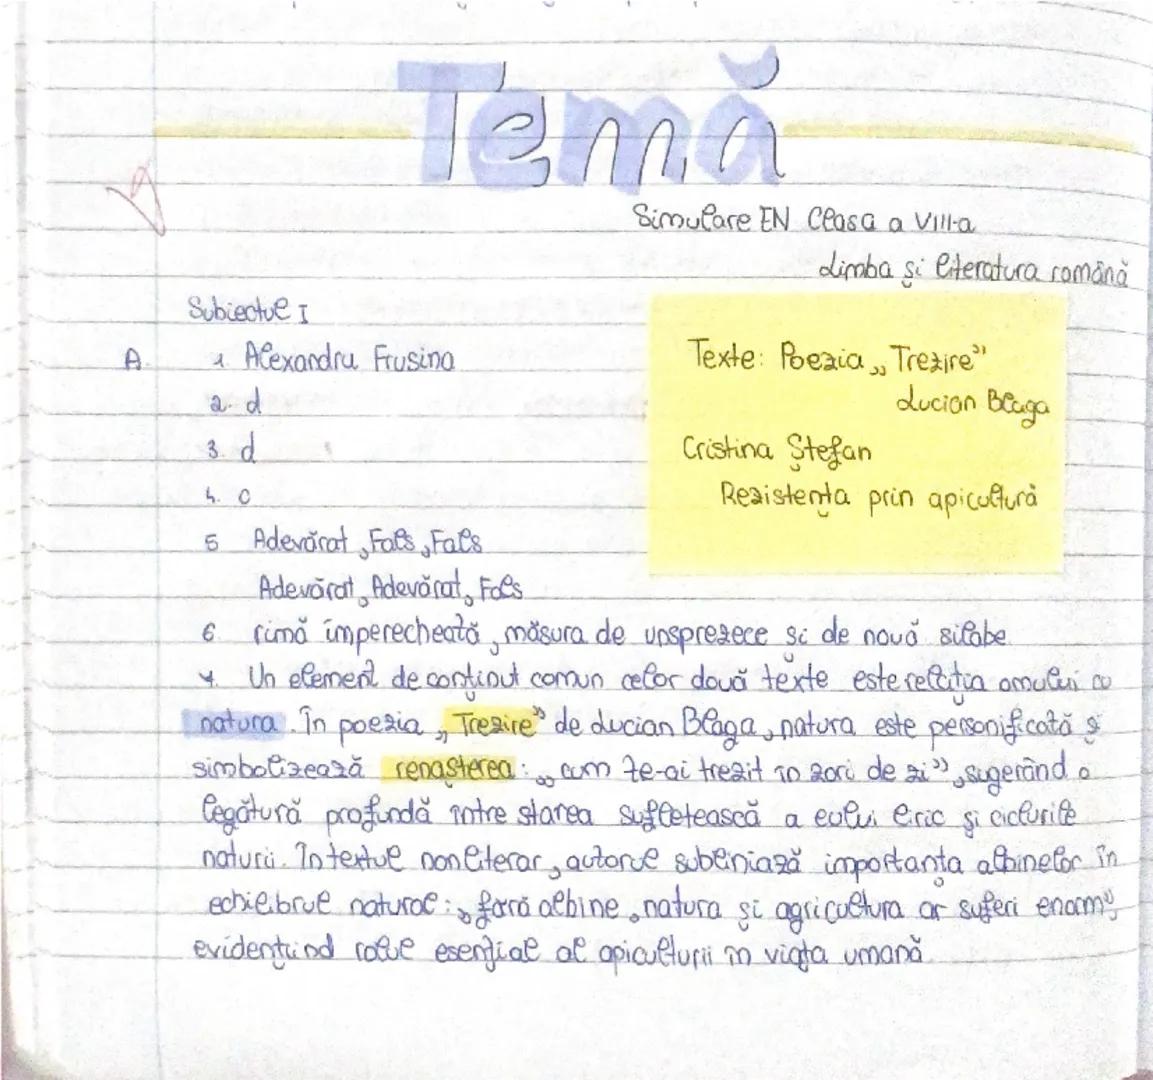 Temă
Simulare EN Clasa a VIII-a
Limba și literatura română
Subiectul I
A. 1. Alexandru Frusina
2. d
3. d
4. c
5 Adevărat, Fals, Fals
Adevărat, Adevărat, Fals
Texte: Poezia „Trezire”
Lucian Blaga
Cristina Ștefan
Rezistența prin apicultură
6. rimă împerecheată, măsura de unsprezece și de nouă silabe
7. Un element de conținut comun celor două texte este relația omului cu
natura. În poezia „Trezire” de Lucian Blaga, natura este personificată și
simbolizează renașterea: „cum te-ai trezit în zori de zi”, sugerând o
legătură profundă între starea sufletească a eului liric și ciclurile
naturii. În textul nonliterar, autorul subliniază importanța albinelor în
echilibrul natural: „fără albine, natura și agricultura ar suferi enorm”
evidențiind rolul esențial al apiculturii în viața umană